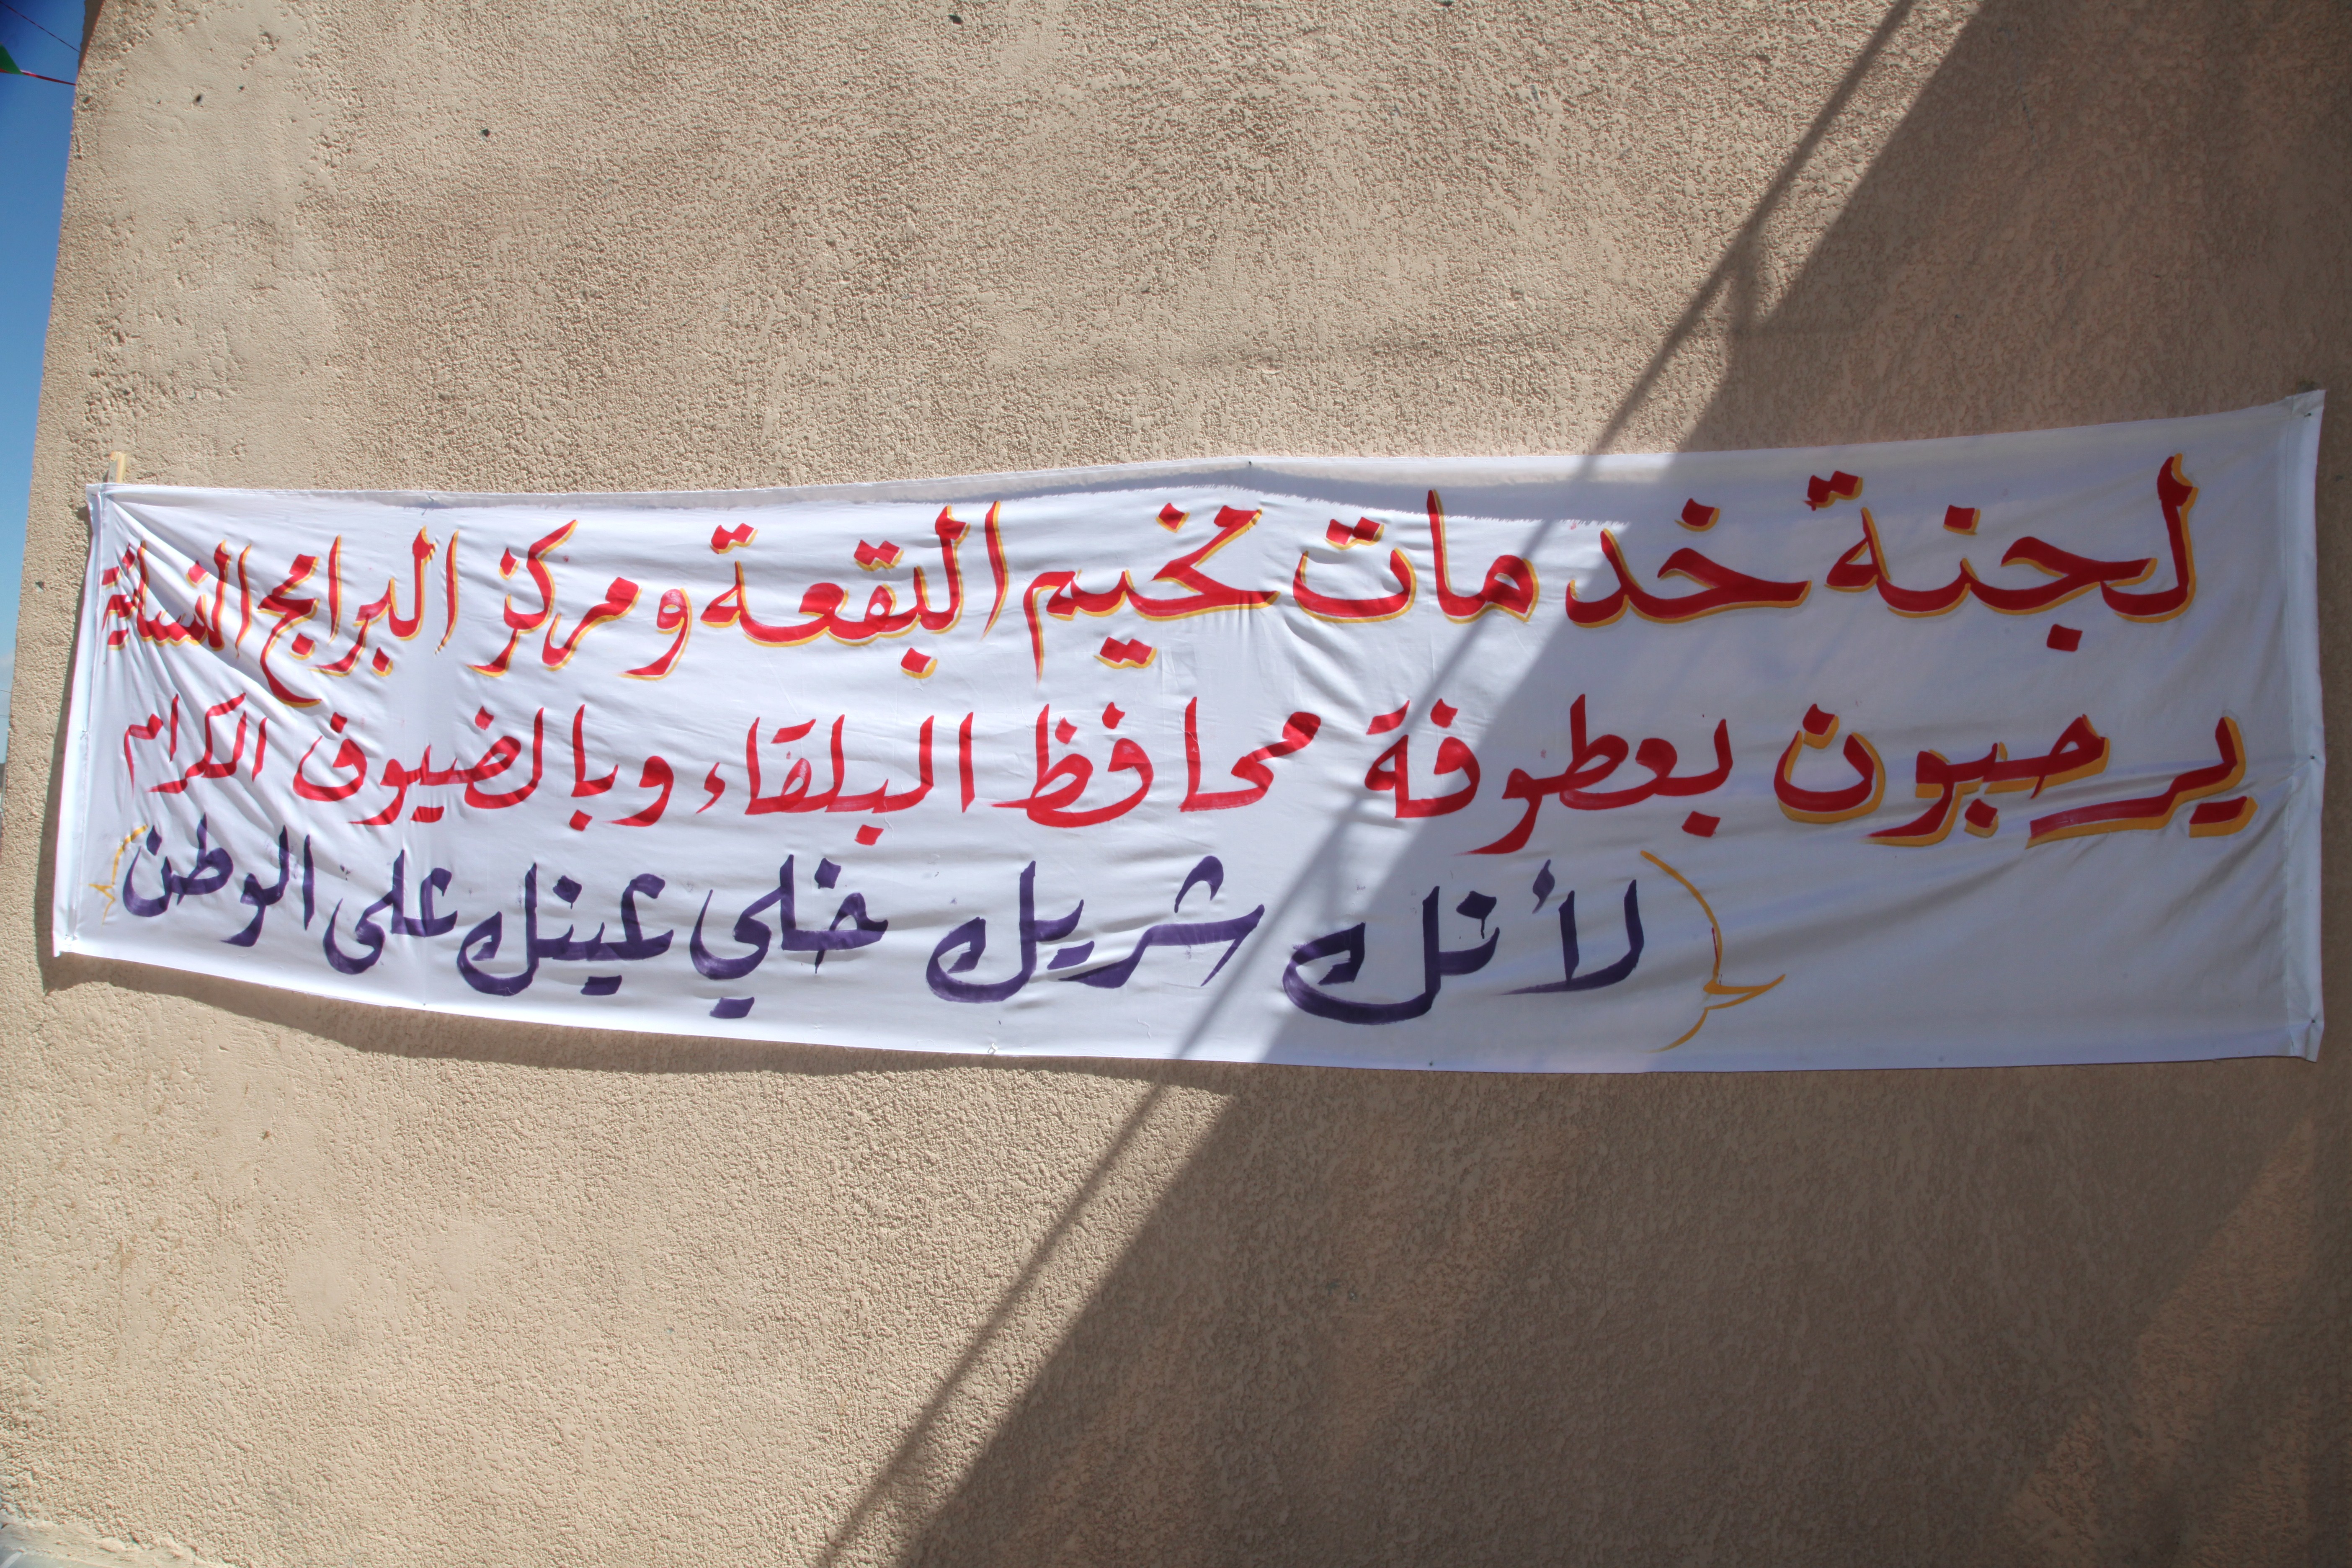 لجنة خدمات مخيم البقعة ومركز البرامج النسائية
يرحبون بعطوفة محافظ البلقاء وبالضيوف الكرام
(لأنك شريك خلي عينك على الوطن)